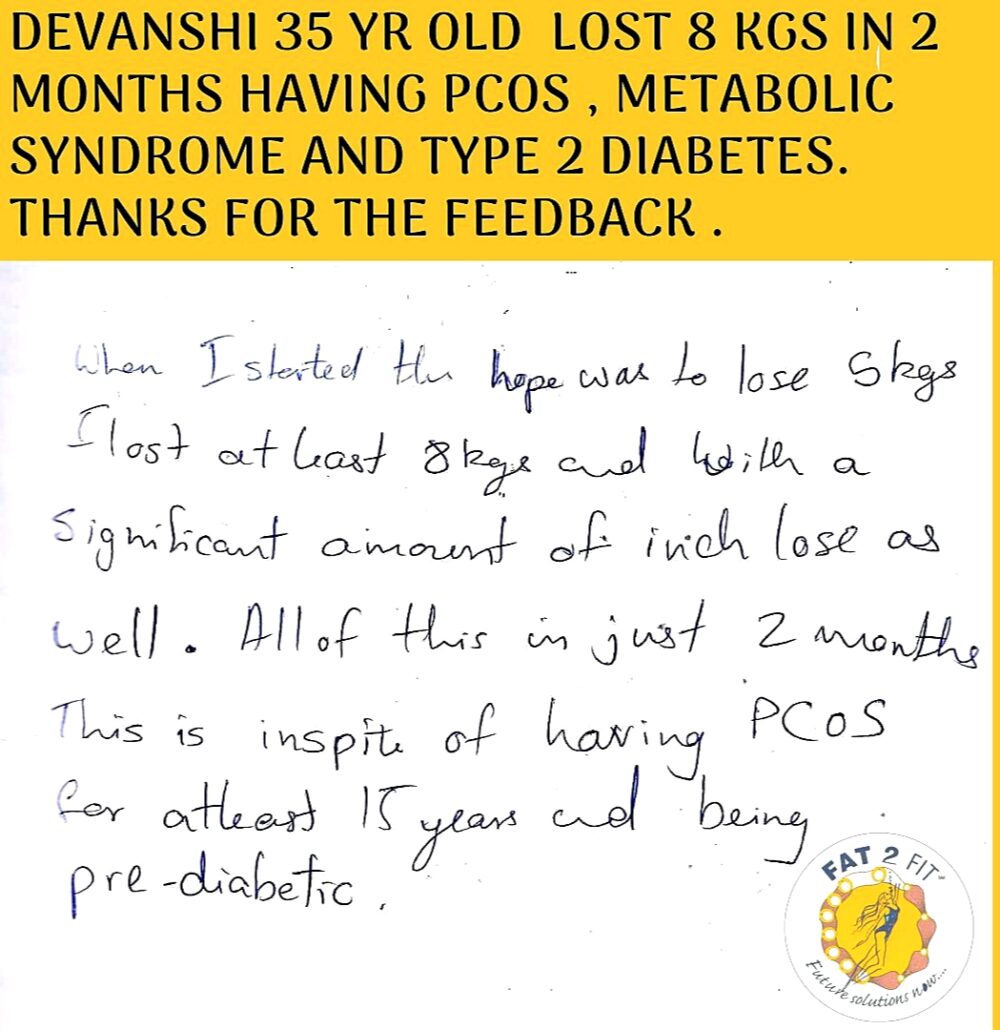 DEVANSHI 35 YR OLD LOST 8 KGS IN 2
MONTHS HAVING PCOS , METABOLIC
SYNDROME AND TYPE 2 DIABETES.
THANKS FOR THE FEEDBACK .
When I started the hope was to lose 5kgs
I lost at least 8kgs and with a
significant amount of inch lose as
well. All of this in just 2 months
This is inspite of having PCOS
for atleast 15 years and being
pre-diabetic.
FAT 2 FIT
Future solutions now....